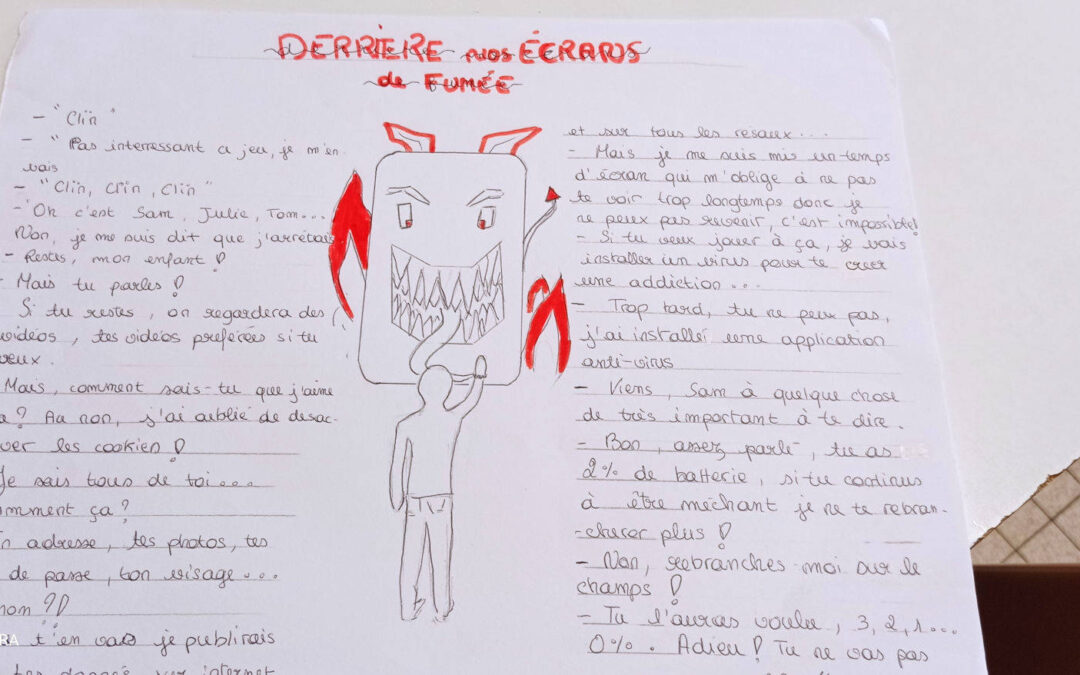 DERRIÈRE nos ÉCRANS
de FUMÉE
- "Clïn"
- "Pas interressant ce jeu, je m'en
vais
- "Clïn, Clïn, Clïn"
- "Oh c'est Sam, Julie, Tom...
Non, je me suis dit que j'arrêtais
- Restes, mon enfant !
- Mais tu parles !
Si tu restes, on regardera des
videos, tes vidéos préférées si tu
veux.
Mais, comment sais-tu que j'aime
ça? Aa non, j'ai oublié de desac-
ver les cookien !
Je sais tous de toi...
mment ça ?
n adresse, tes photos, tes
de passe, ton visage...
non ?!
t'en vas je publirais
tes donnés sur internet
et sur tous les resaux...
- Mais je me suis mis un temps
d'écran qui m'oblige à ne pas
te voir trop longtemps donc je
ne peux pas revenir, c'est impossible!
- Si tu veux jouer à ça, je vais
installer un virus pour te creer
une addiction...
- Trop tard, tu ne peux pas,
j'ai installé une application
anti-virus
- Viens, Sam à quelque chose
de très important à te dire.
- Bon, assez parlé, tu as
2% de batterie, si tu continus
à être méchant je ne te rebran-
-cherer plus !
- Non, rebranches-moi sur le
champs !
- Tu l'auras voulu, 3, 2, 1...
0%. Adieu ! Tu ne vas pas